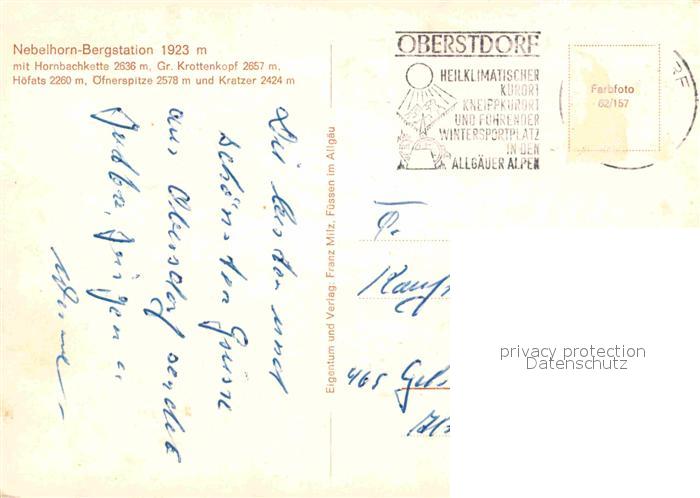 Nebelhorn-Bergstation 1923 m
mit Hornbachkette 2636 m, Gr. Krottenkopf 2657 m,
Höfats 2260 m, Öfnerspitze 2578 m und Kratzer 2424 m
OBERSTDORF
HEILKLIMATISCHER
KURORT
KNEIPPKURORT
UND FÜHRENDER
WINTERSPORTPLATZ
IN DEN
ALLGÄUER ALPEN
Farbfoto
62/157
Die besten und
schönsten Grüsse
aus Oberstdorf sendet
Jürgen u.
Eigentum und Verlag: Franz Milz, Füssen im Allgäu
F.
Kauf
465 Gels
privacy protection
Datenschutz